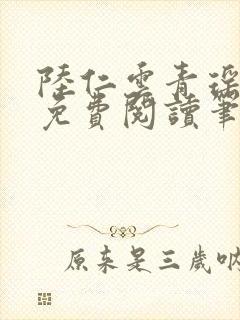 陸仁雲青瑤
免費閱讀筆
原来是三歲吶